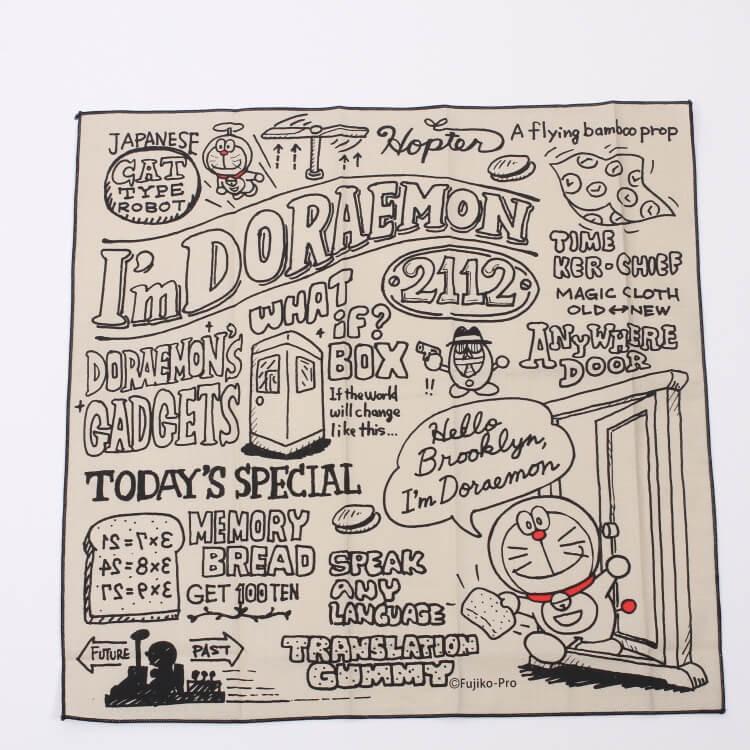 JAPANESE
CAT
TYPE
ROBOT
Hopter
A flying bamboo prop
I'm DORAEMON
TIME
KER-CHIEF
MAGIC CLOTH
OLD↔NEW
2112
WHAT
iF?
BOX
If the world
will change
like this...
!!
ANYWHERE
DOOR
DORAEMON'S
GADGETS
Hello
Brooklyn,
I'm Doraemon
TODAY'S SPECIAL
3×7=21
3×8=24
3×9=27
MEMORY
BREAD
GET 100 TEN
SPEAK
ANY
LANGUAGE
FUTURE
PAST
TRANSLATION
GUMMY
©Fujiko-Pro